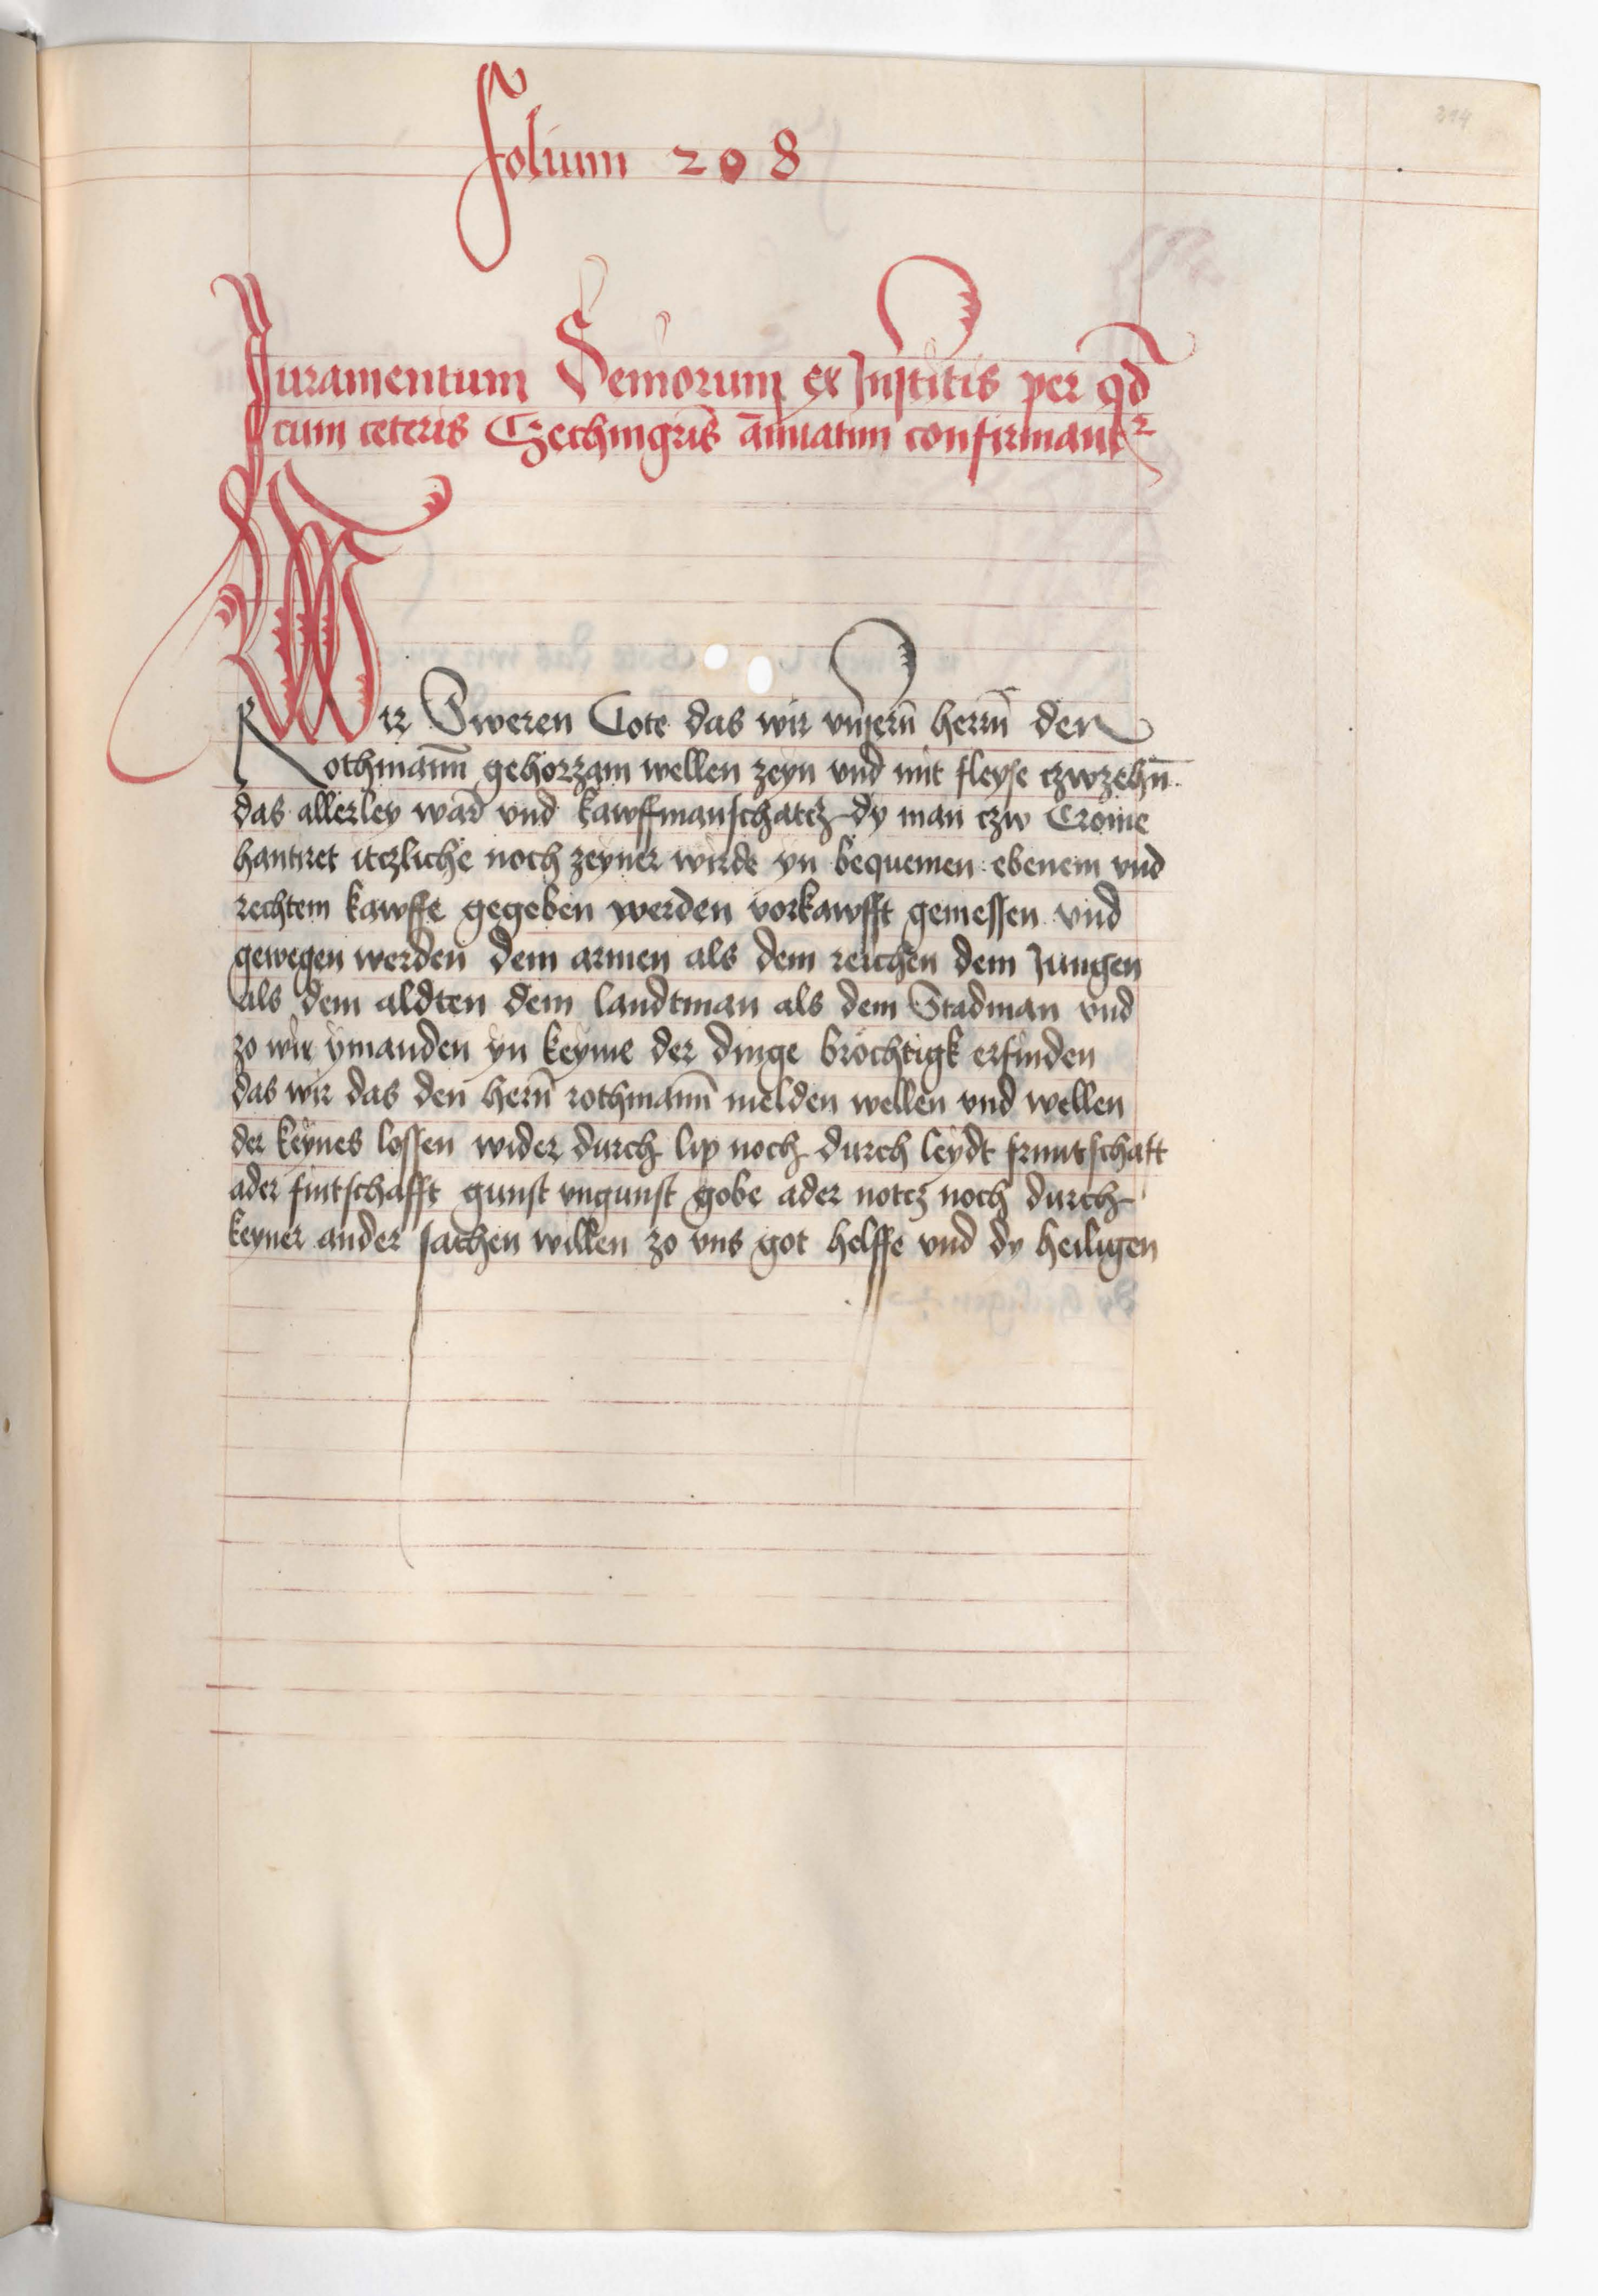 Folium 208
Juramentum Seniorum ex Institis per qd̄
cum ceteris Czechmgris ānuatim confirmantr
Wir Sweren Gote das wir vnsern̄ herrn̄ den
Rothmann̄ gehorzam wellen zeyn vnd mit fleyse czwzehn̄
das allerley war vnd kawffmanschatcz dy man czw Crome
hantiret itczliche noch zeyner wirde yn bequemen ebenem vnd
rechtem kawffe gegeben werden vorkawfft gemessen vnd
gewegen werden dem armen als dem reichen dem Jungen
als dem aldten dem landtman als dem Stadman vnd
zo wir ymanden yn keyme der dinge bröchtigk erfinden
das wir das den hern̄ rothmann̄ melden wellen vnd wellen
der keynes lossen wider durch lip noch durch leydt fruntschaft
ader fintschafft gunst vngunst gobe ader notcz noch durch
keyner ander sachen willen zo vns got helffe vnd dy heiligen